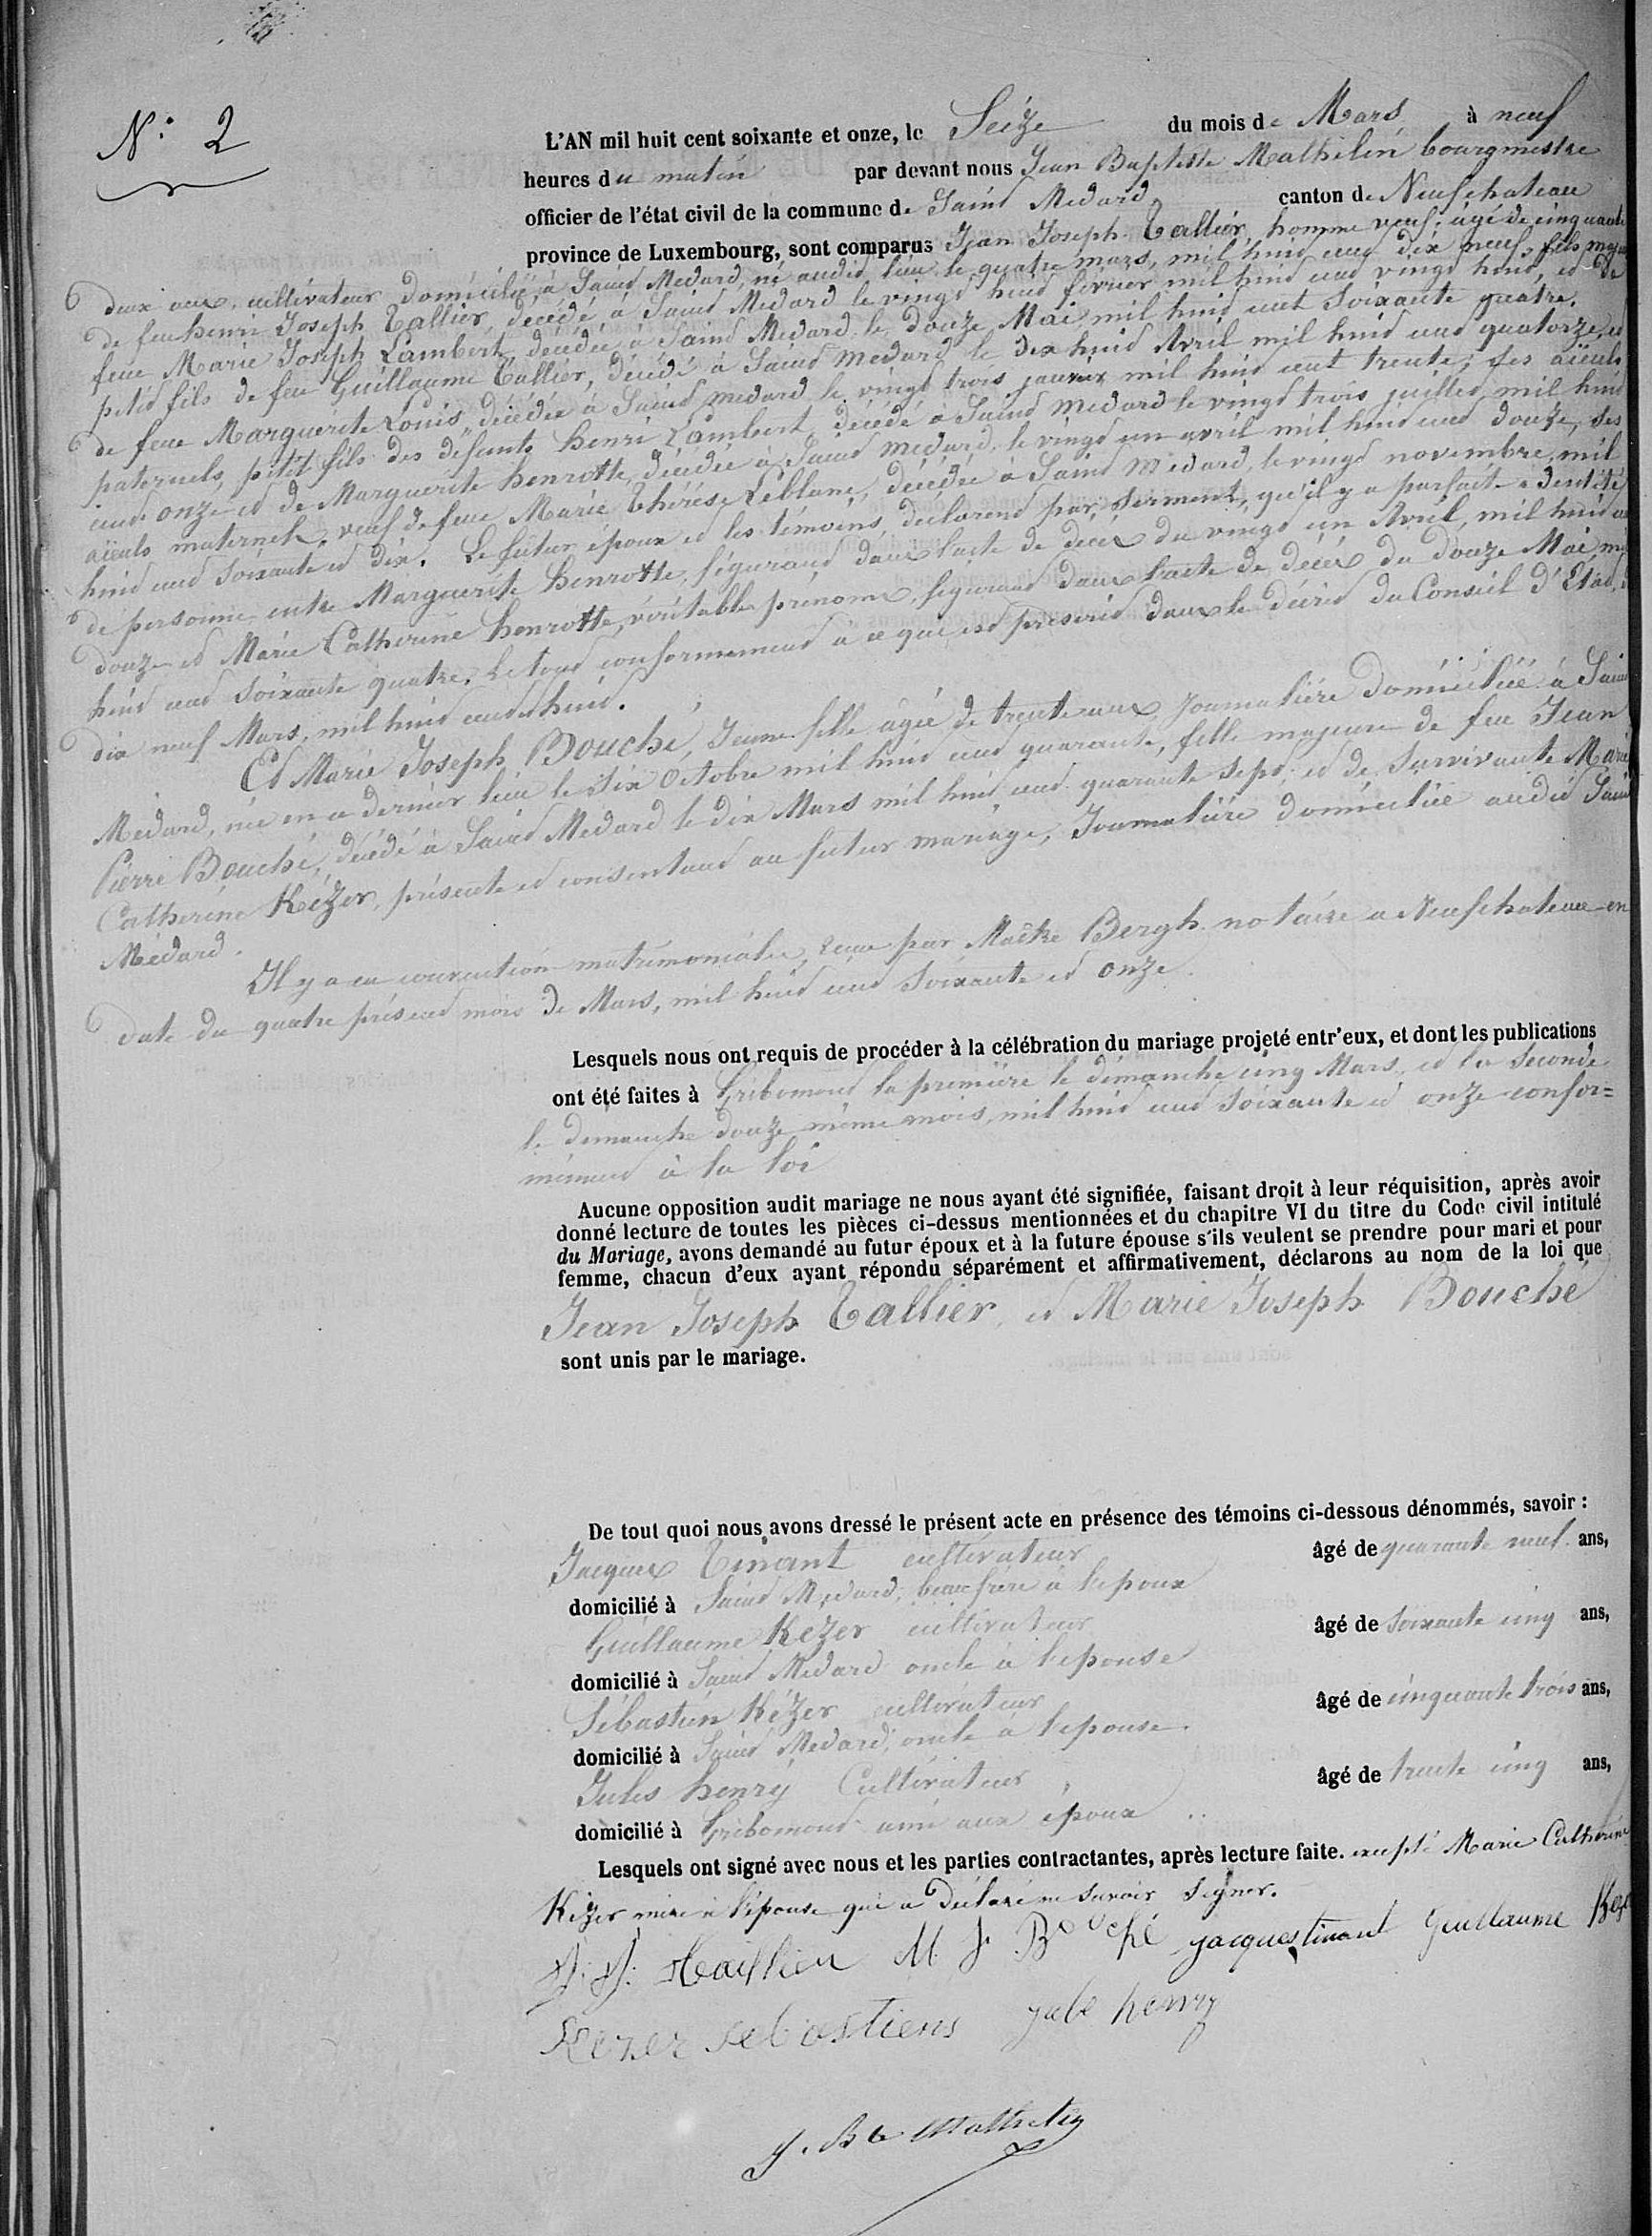 N° 2
L'AN mil huit cent soixante et onze, le Seize du mois de Mars à neuf
heures du matin par devant nous Jean Baptiste Mathelin bourgmestre
officier de l'état civil de la commune de Saint Medard, canton de Neufchateau
province de Luxembourg, sont comparus Jean Joseph Tallier, homme veuf, âgé de cinquante
deux ans, cultivateur domicilié à Saint Medard, né audit lieu le quatre mars, mil huit cent dix neuf, fils majeur
de feu henri Joseph Tallier, décédé à Saint Medard le vingt huit février mil huit cent vingt huit, et de
feue Marie Joseph Lambert, décédée à Saint Medard le douze Mai mil huit cent soixante quatre,
petit fils de feu Guillaume Tallier, décédé à Saint Medard le dix huit Avril mil huit cent quatorze, et
de feue Marguerite Louis, décédée à Saint Medard le vingt trois janvier mil huit cent trente; ses aïeuls
paternels, petit fils des défunts henri Lambert, décédé à Saint Medard le vingt trois juillet mil huit
cent onze et de Marguerite henrotte, décédée à Saint Medard, le vingt un avril mil huit cent douze, ses
aïeuls maternels, veuf de feue Marie Thérèse Leblanc, décédée à Saint Médard, le vingt novembre, mil
huit cent soixante et dix. Le futur époux et les témoins déclarent par serment, qu'il y a parfaite identité
de personne entre Marguerite henrotte, figurant dans l'acte de décès du vingt un Avril, mil huit cent
douze et Marie Catherine henrotte, véritables prénoms, figurant dans l'acte de décès du douze Mai, mil
huit cent soixante quatre. Le tout conformement à ce qui est prescrit dans le décret du Conseil d'Etat, du
dix neuf Mars, mil huit cent huit.
Et Marie Joseph Bouché, Jeune fille âgée de trente ans, Journalière domiciliée à Saint
Medard, née en ce dernier lieu le six Octobre mil huit cent quarante, fille majeure de feu Jean
Pierre Bouché, décédé à Saint Medard le dix Mars mil huit cent quarante sept; et de survivante Marie
Catherine Kézer, présente et consentant au futur mariage, Journalière domiciliée audit Saint
Médard.
Il y a eu convention matrimoniale, reçue par Maître Bergh notaire a Neufchateau en
date du quatre présent mois de Mars, mil huit cent soixante et onze.
Lesquels nous ont requis de procéder à la célébration du mariage projeté entr'eux, et dont les publications
ont été faites à Gribomont la première le dimanche cinq Mars, et la seconde
le dimanche douze même mois, mil huit cent soixante et onze confor=
mément à la loi
Aucune opposition audit mariage ne nous ayant été signifiée, faisant droit à leur réquisition, après avoir
donné lecture de toutes les pièces ci-dessus mentionnées et du chapitre VI du titre du Code civil intitulé
du Mariage, avons demandé au futur époux et à la future épouse s'ils veulent se prendre pour mari et pour
femme, chacun d'eux ayant répondu séparément et affirmativement, déclarons au nom de la loi que
Jean Joseph Tallier, et Marie Joseph Bouché
sont unis par le mariage.
De tout quoi nous avons dressé le présent acte en présence des témoins ci-dessous dénommés, savoir :
Jacques Tinant cultivateur âgé de quarante neuf ans,
domicilié à Saint Médard, beau frère à l'époux
Guillaume Kézer cultivateur âgé de soixante cinq ans,
domicilié à Saint Médard oncle à l'épouse
Sébastien Kézer cultivateur âgé de cinquante trois ans,
domicilié à Saint Medard, oncle à l'épouse.
Jules henry Cultivateur, âgé de trente cinq ans,
domicilié à Gribomont ami aux époux
Lesquels ont signé avec nous et les parties contractantes, après lecture faite. excepté Marie Catherine
Kézer mère à l'épouse qui a déclaré ne savoir signer.
J. J. M. J. Bouché jacques tinant Guillaume Keze
Kezer sebastiens jule henry
J. Bte Mathelin